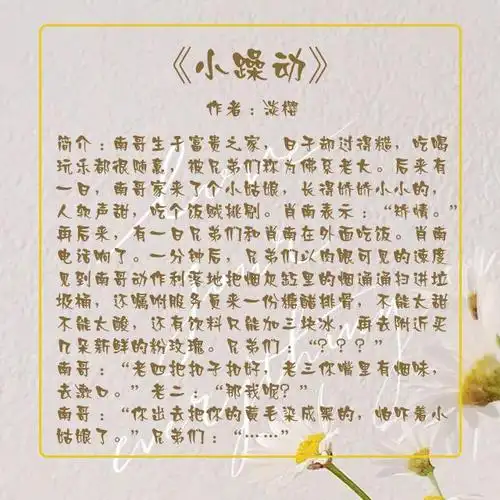 《小躁动》
作者：淡樱
简介：南哥生于富贵之家，日子却过得糙，吃喝
玩乐都很随意，被兄弟们称为佛系老大。后来有
一日，南哥家来了个小姑娘，长得娇娇小小的，
人软声甜，吃个饭贼挑剔。肖南表示：“矫情。”
再后来，有一日兄弟们和肖南在外面吃饭。肖南
电话响了。一分钟后，兄弟们以肉眼可见的速度
见到南哥动作利落地把烟灰缸里的烟通通扫进垃
圾桶，还嘱咐服务员来一份糖醋排骨：不能太甜
不能太酸，还有饮料只能加三块冰，再去附近买
几朵新鲜的粉玫瑰。兄弟们：“？？？”
南哥：“老四把扣子扣好，老三你嘴里有烟味，
去漱口。”老二：“那我呢？”
南哥：“你出去把你的黄毛染成黑的，怕吓着小
姑娘了。”兄弟们：“……”
everything